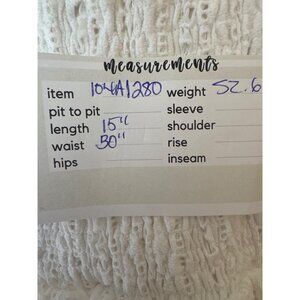 measurements
item 104A1280 weight 52.6
pit to pit sleeve
length 15" shoulder
waist 30" rise
hips inseam